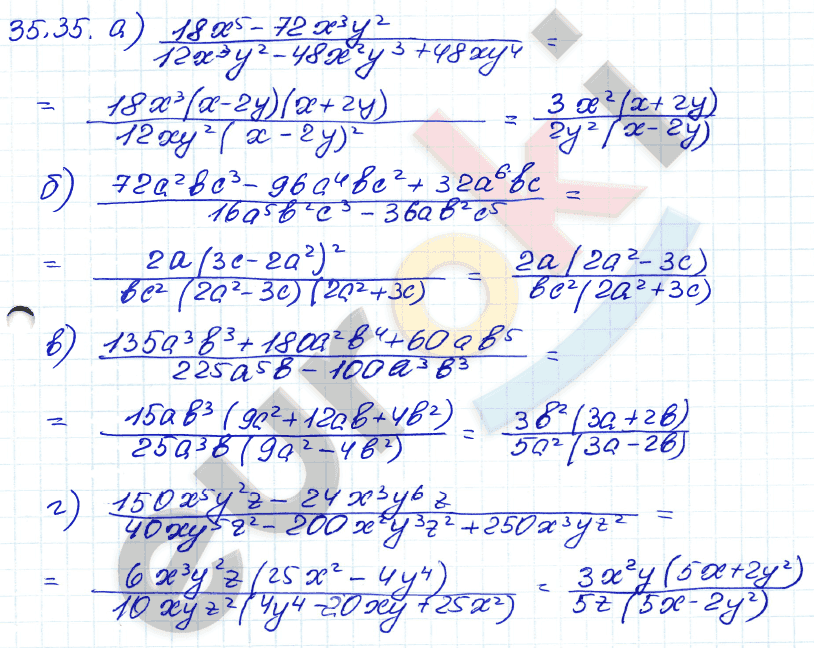 35.35. а) (18x⁵ − 72x³y²)/(12x³y² − 48x²y³ + 48xy⁴) =
= (18x³(x−2y)(x+2y))/(12xy²(x−2y)²) = (3x²(x+2y))/(2y²(x−2y))
б) (72a²bc³ − 96a⁴bc² + 32a⁶bc)/(16a⁵b²c³ − 36ab²c⁵) =
= (2a(3c−2a²)²)/(bc²(2a²−3c)(2a²+3c)) = (2a(2a²−3c))/(bc²(2a²+3c))
в) (135a³b³ + 180a²b⁴ + 60ab⁵)/(225a⁵b − 100a³b³) =
= (15ab³(9a²+12ab+4b²))/(25a³b(9a²−4b²)) = (3b²(3a+2b))/(5a²(3a−2b))
г) (150x⁵y²z − 24x³y⁶z)/(40xy⁵z² − 200x²y³z² + 250x³yz²) =
= (6x³y²z(25x²−4y⁴))/(10xyz²(4y⁴−20xy+25x²)) = (3x²y(5x+2y²))/(5z(5x−2y²))
euroki